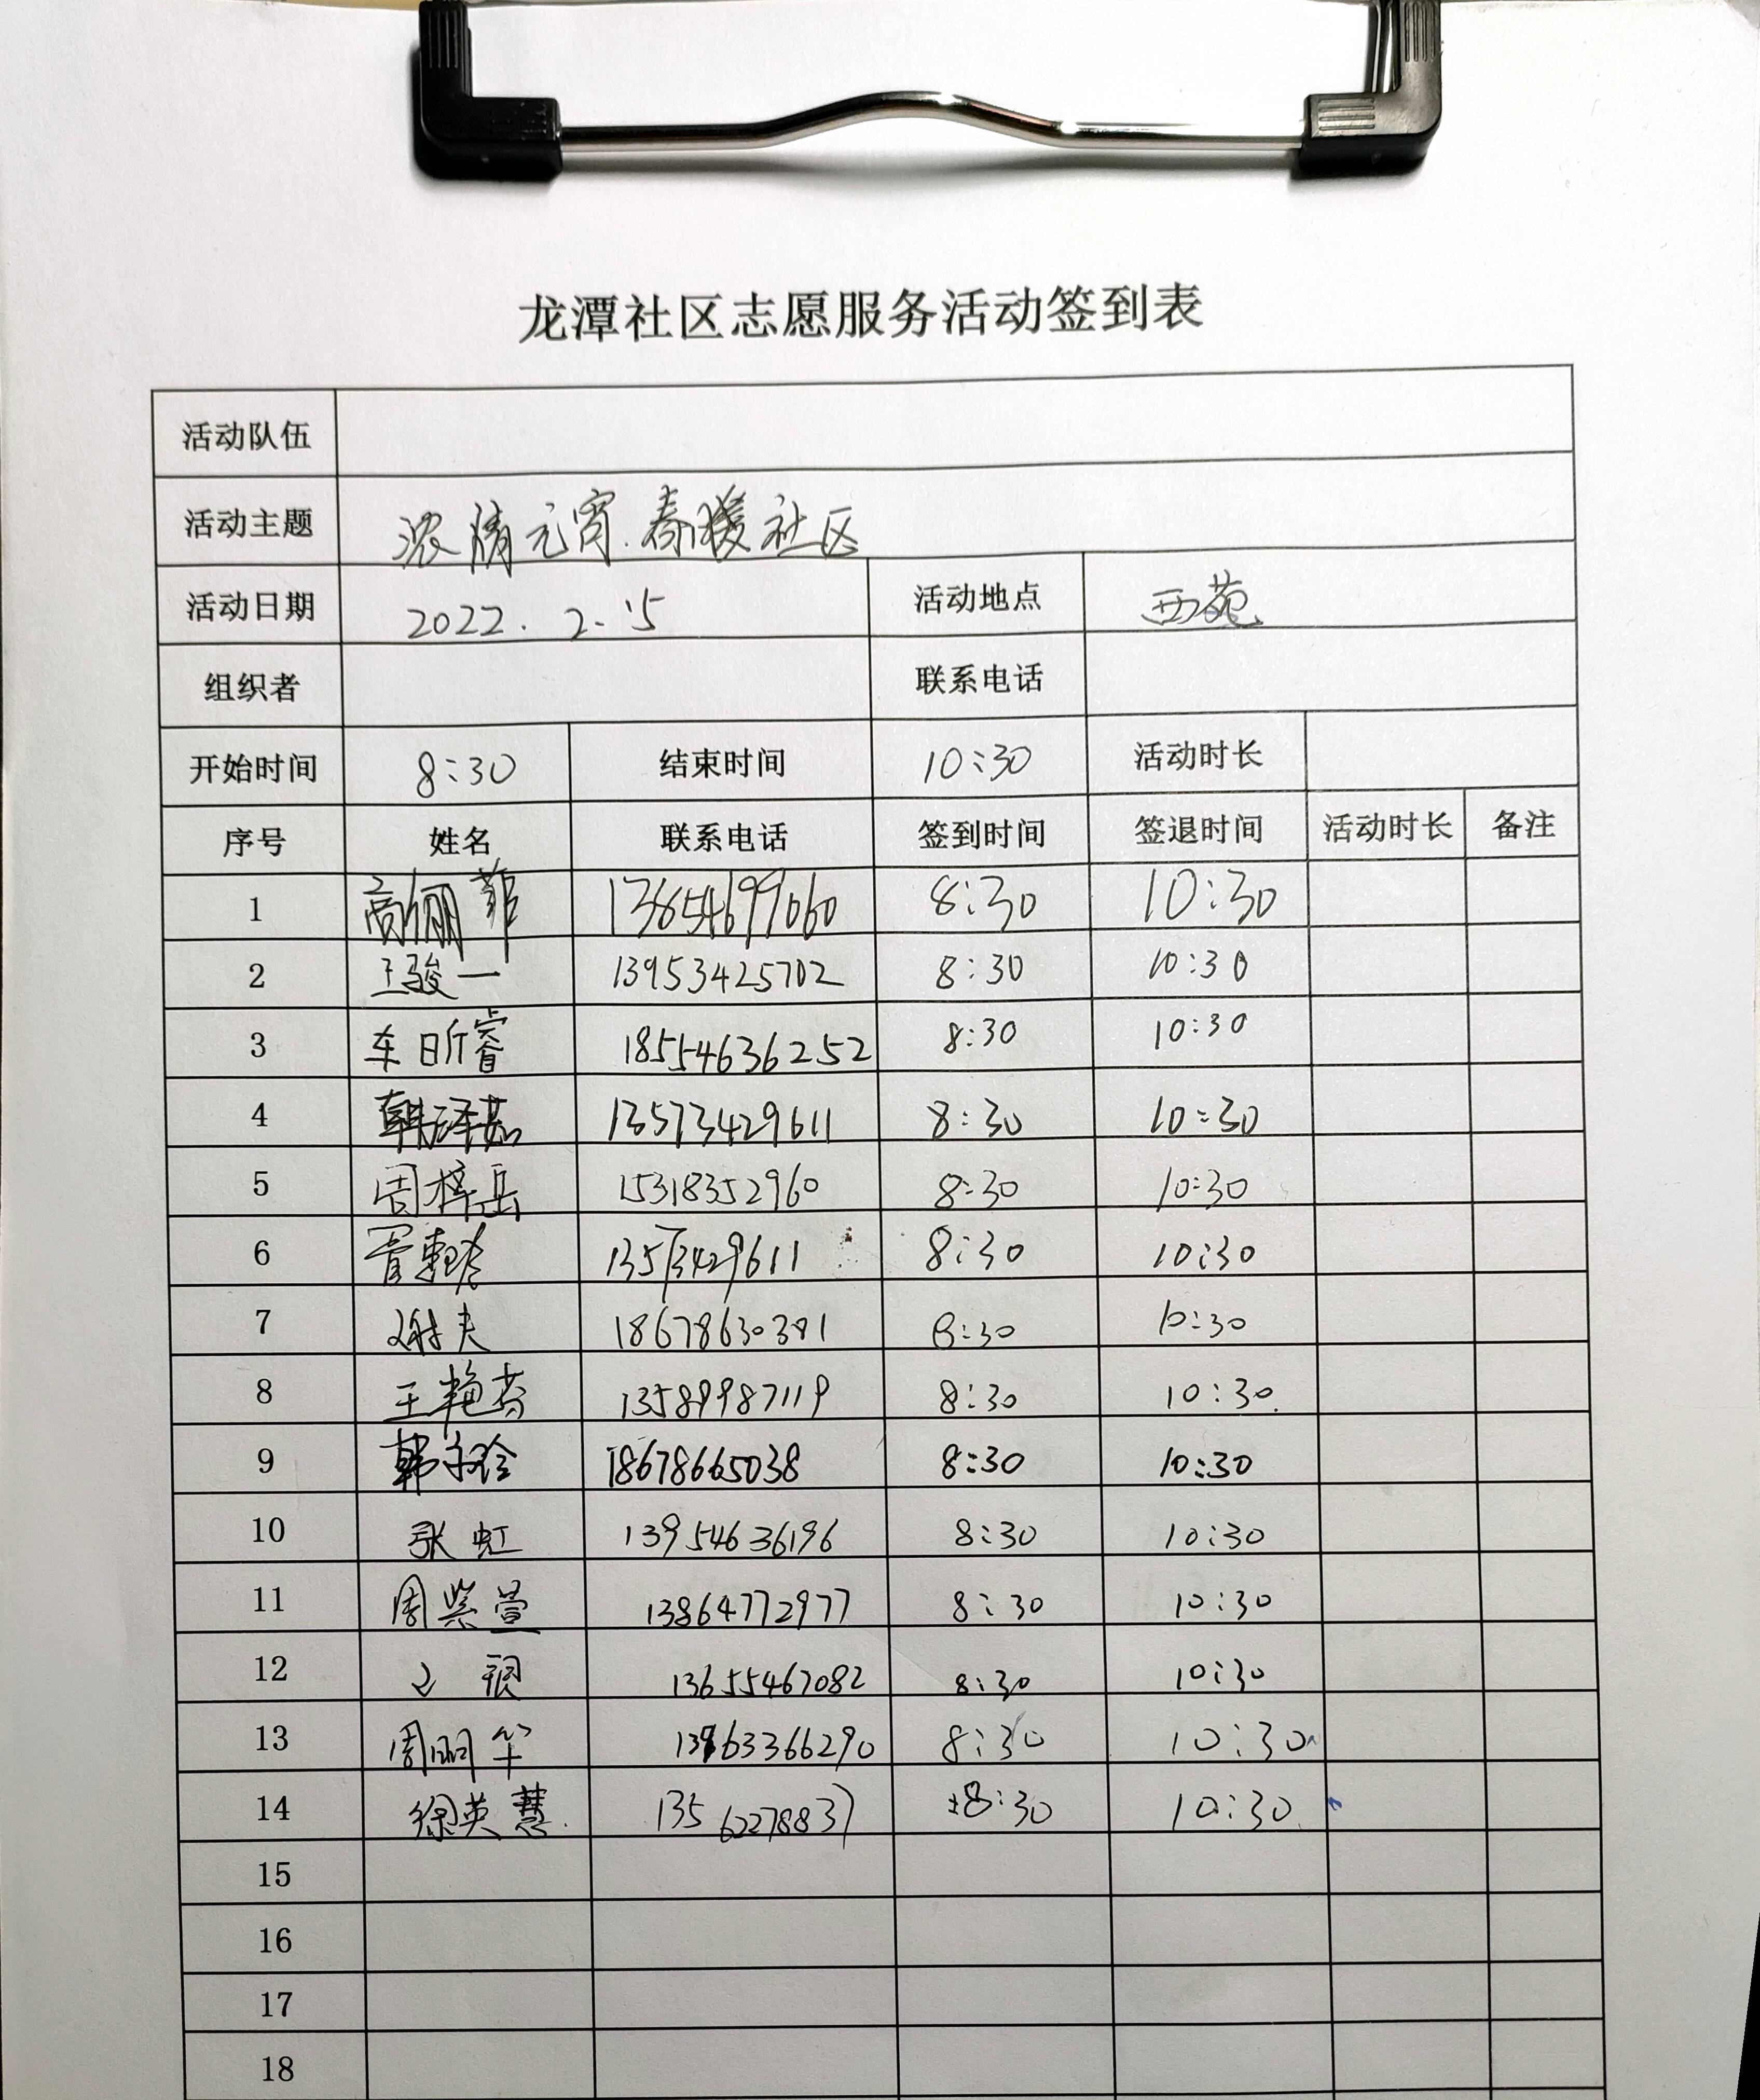 龙潭社区志愿服务活动签到表
活动队伍
活动主题 浓情元宵.春暖社区
活动日期 2022.2.15 活动地点 西苑
组织者 联系电话
开始时间 8:30 结束时间 10:30 活动时长
序号 姓名 联系电话 签到时间 签退时间 活动时长 备注
1 高俪菲 13654699060 8:30 10:30
2 王骏一 13953425702 8:30 10:30
3 车昕睿 18554636252 8:30 10:30
4 韩泽茹 13573429611 8:30 10:30
5 周梓岳 15318352960 8:30 10:30
6 13573429611 8:30 10:30
7 谢夫 18678630381 8:30 10:30
8 王艳芬 13589987119 8:30 10:30
9 韩 18678665038 8:30 10:30
10 张虹 13954636196 8:30 10:30
11 周紫萱 13864772977 8:30 10:30
12 13655467082 8:30 10:30
13 周丽华 13963366290 8:30 10:30
14 徐英慧 13562278837 8:30 10:30
15
16
17
18